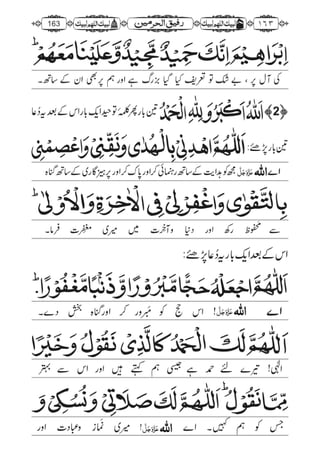 163 لبیک اللھم لبیک رفیق الحرمین لبیک اللھم لبیک ١٦٣
اِبْرٰهِيْمَ اِنَّكَ حَمِيْدٌ مَّجِيْدٌ وَّعَلَيْنَا مَعَهُمْ ؕ
کی آل پر ، بے شک تو تعریف کیا گیا بزرگ ہے اور ہم پر بھی ان کے ساتھ۔
﴿2﴾ اَللّٰهُ اَكْبَرُ وَلِلّٰهِ الْحَمْدُ تین بار پھر کلمۂ توحید ایک بار اس کے بعد یہ دُعا
تین بار پڑھئے: اَللّٰهُمَّ اهْدِنِيْ بِالْهُدٰى وَنَقِّنِيْ وَاعْصِمْنِيْ
اے اللہ مجھ کو ہدایت کے ساتھ رہنمائی کر اور پاک کر اور پرہیزگاری کے ساتھ گناہ
بِالتَّقْوٰى وَاغْفِرْ لِيْ فِي الْاٰخِرَةِ وَالْاُوْلٰى ؕ
سے محفوظ رکھ اور دنیا و آخرت میں میری مغفرت فرما۔
اس کے بعد ایک بار یہ دُعا پڑھئے:
اَللّٰهُمَّ اجْعَلْهُ حَجًّا مَّبْرُوْرًا وَّ ذَنْۢبًا مَّغْفُوْرًا ؕ
اے اللہ عَزَّوَجَلَّ! اس حج کو مبرور کر اور گناہ بخش دے۔
اَللّٰهُمَّ لَكَ الْحَمْدُ كَالَّذِيْ نَقُوْلُ وَخَيْرًا
الٰہی! تیرے لئے حمد ہے جیسی ہم کہتے ہیں اور اس سے بہتر
مِّمَّا نَقُوْلُ ؕ اَللّٰهُمَّ لَكَ صَلَاتِيْ وَنُسُكِيْ وَ
جس کو ہم کہیں۔ اے اللہ عَزَّوَجَلَّ! میری نماز و عبادت اور